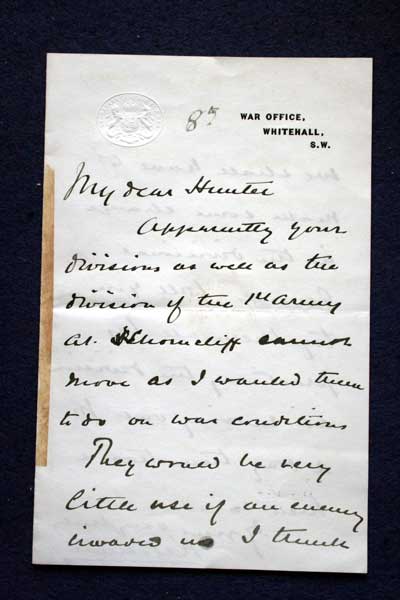 8th
WAR OFFICE,
WHITEHALL,
S.W.
My dear Hunter
Apparently your
divisions as well as the
division of the 1st Army
at Shorncliff cannot
move as I wanted them
to do on war conditions
They would be very
little use if an enemy
invaded us I think